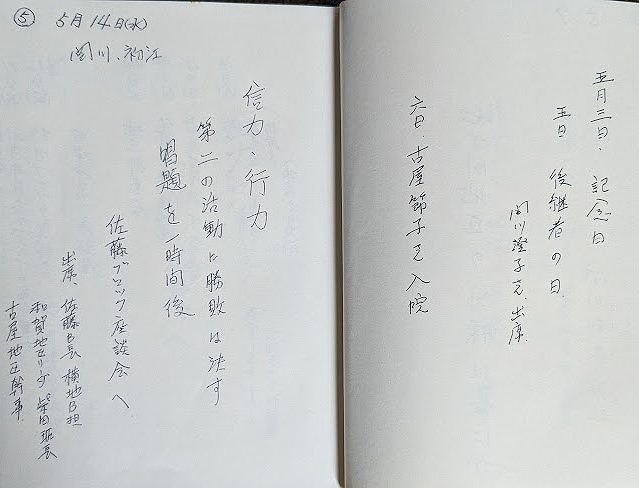 五月三日、記念日
五日 後継者の日
関川澄子さん出席
六日、古屋節子さん入院
⑤ 5月14日(水)
関川、初江
信力・行力
第二の活動に勝敗は決す
唱題を一時間後
佐藤ブロック座談会へ
出席、佐藤B長 横地B担
和賀地セリーダ 柴田班長
古屋地区幹事